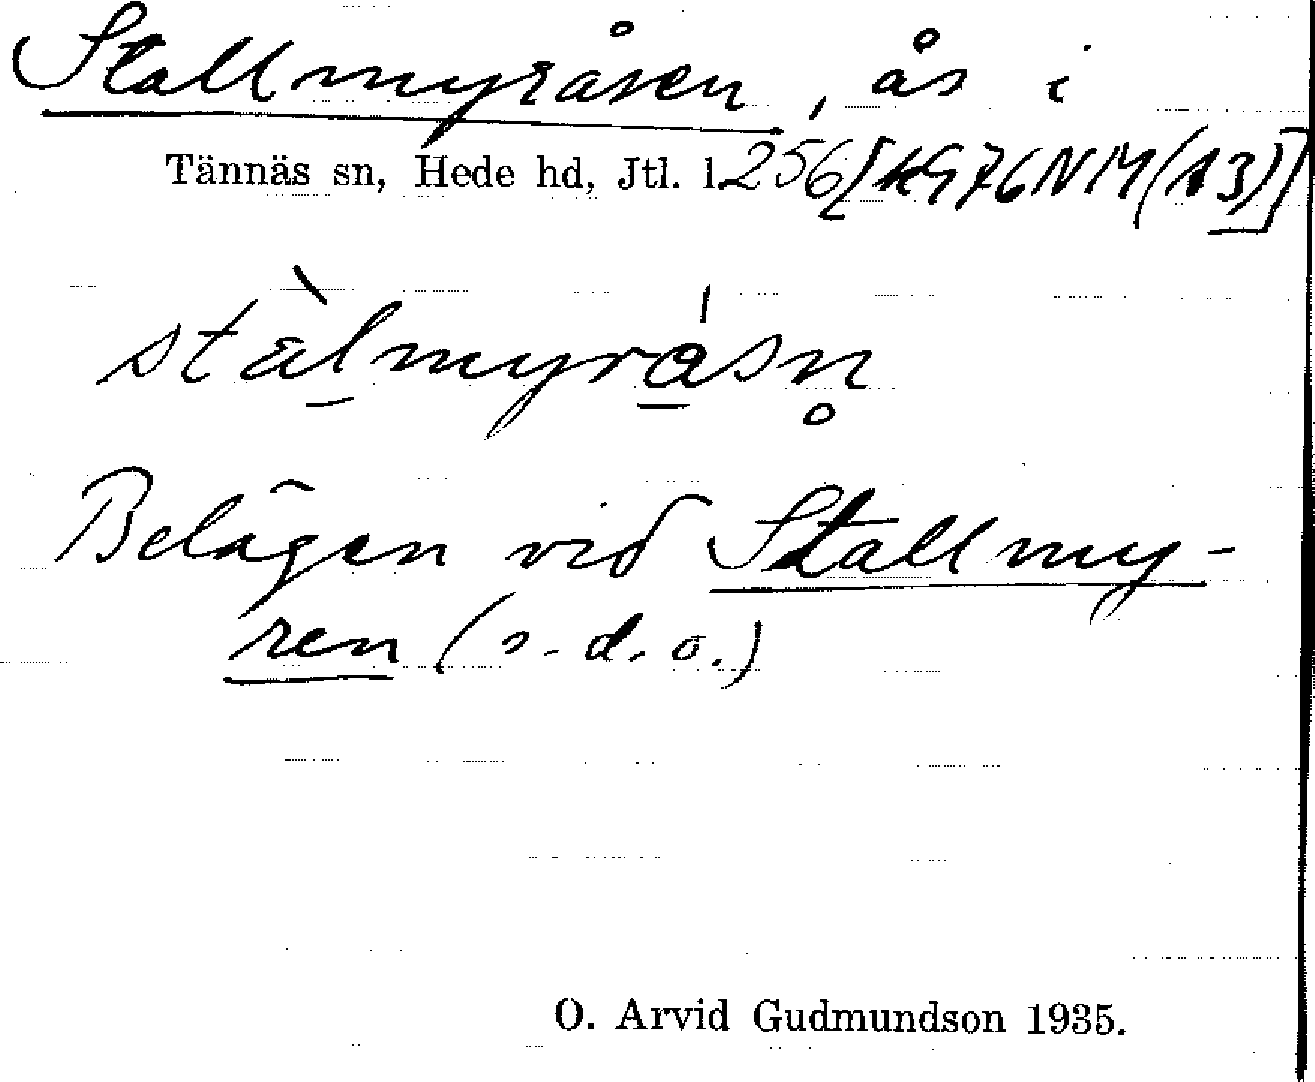 Stallmyråsen, ås i
Tännäs sn, Hede hd, Jtl. l. 256 [KG76NM(13)]
stàlmyråsn̥
Belägen vid Stallmy-
ren (s.d.o.)
O. Arvid Gudmundson 1935.